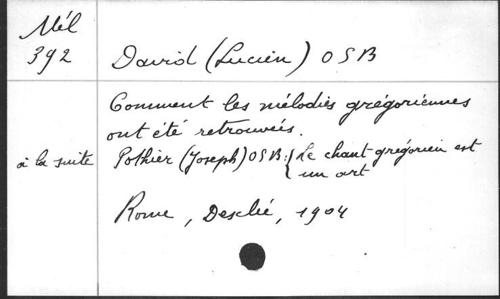 Mél
392
David (Lucien) OSB
Comment les mélodies grégoriennes
ont été retrouvées.
à la suite Pothier (Joseph) OSB: { Le chant grégorien est
un art
Rome, Desclée, 1904